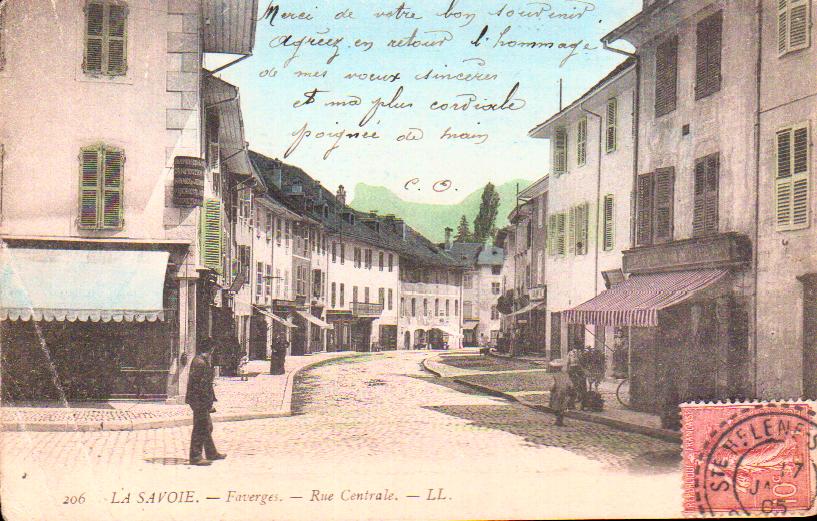 Merci de votre bon souvenir.
Agréez en retour l'hommage
de mes voeux sincères
et ma plus cordiale
poignée de main
C. O.
206 LA SAVOIE. — Faverges. — Rue Centrale. — LL.
STE HELENE S
17
JA
05
10